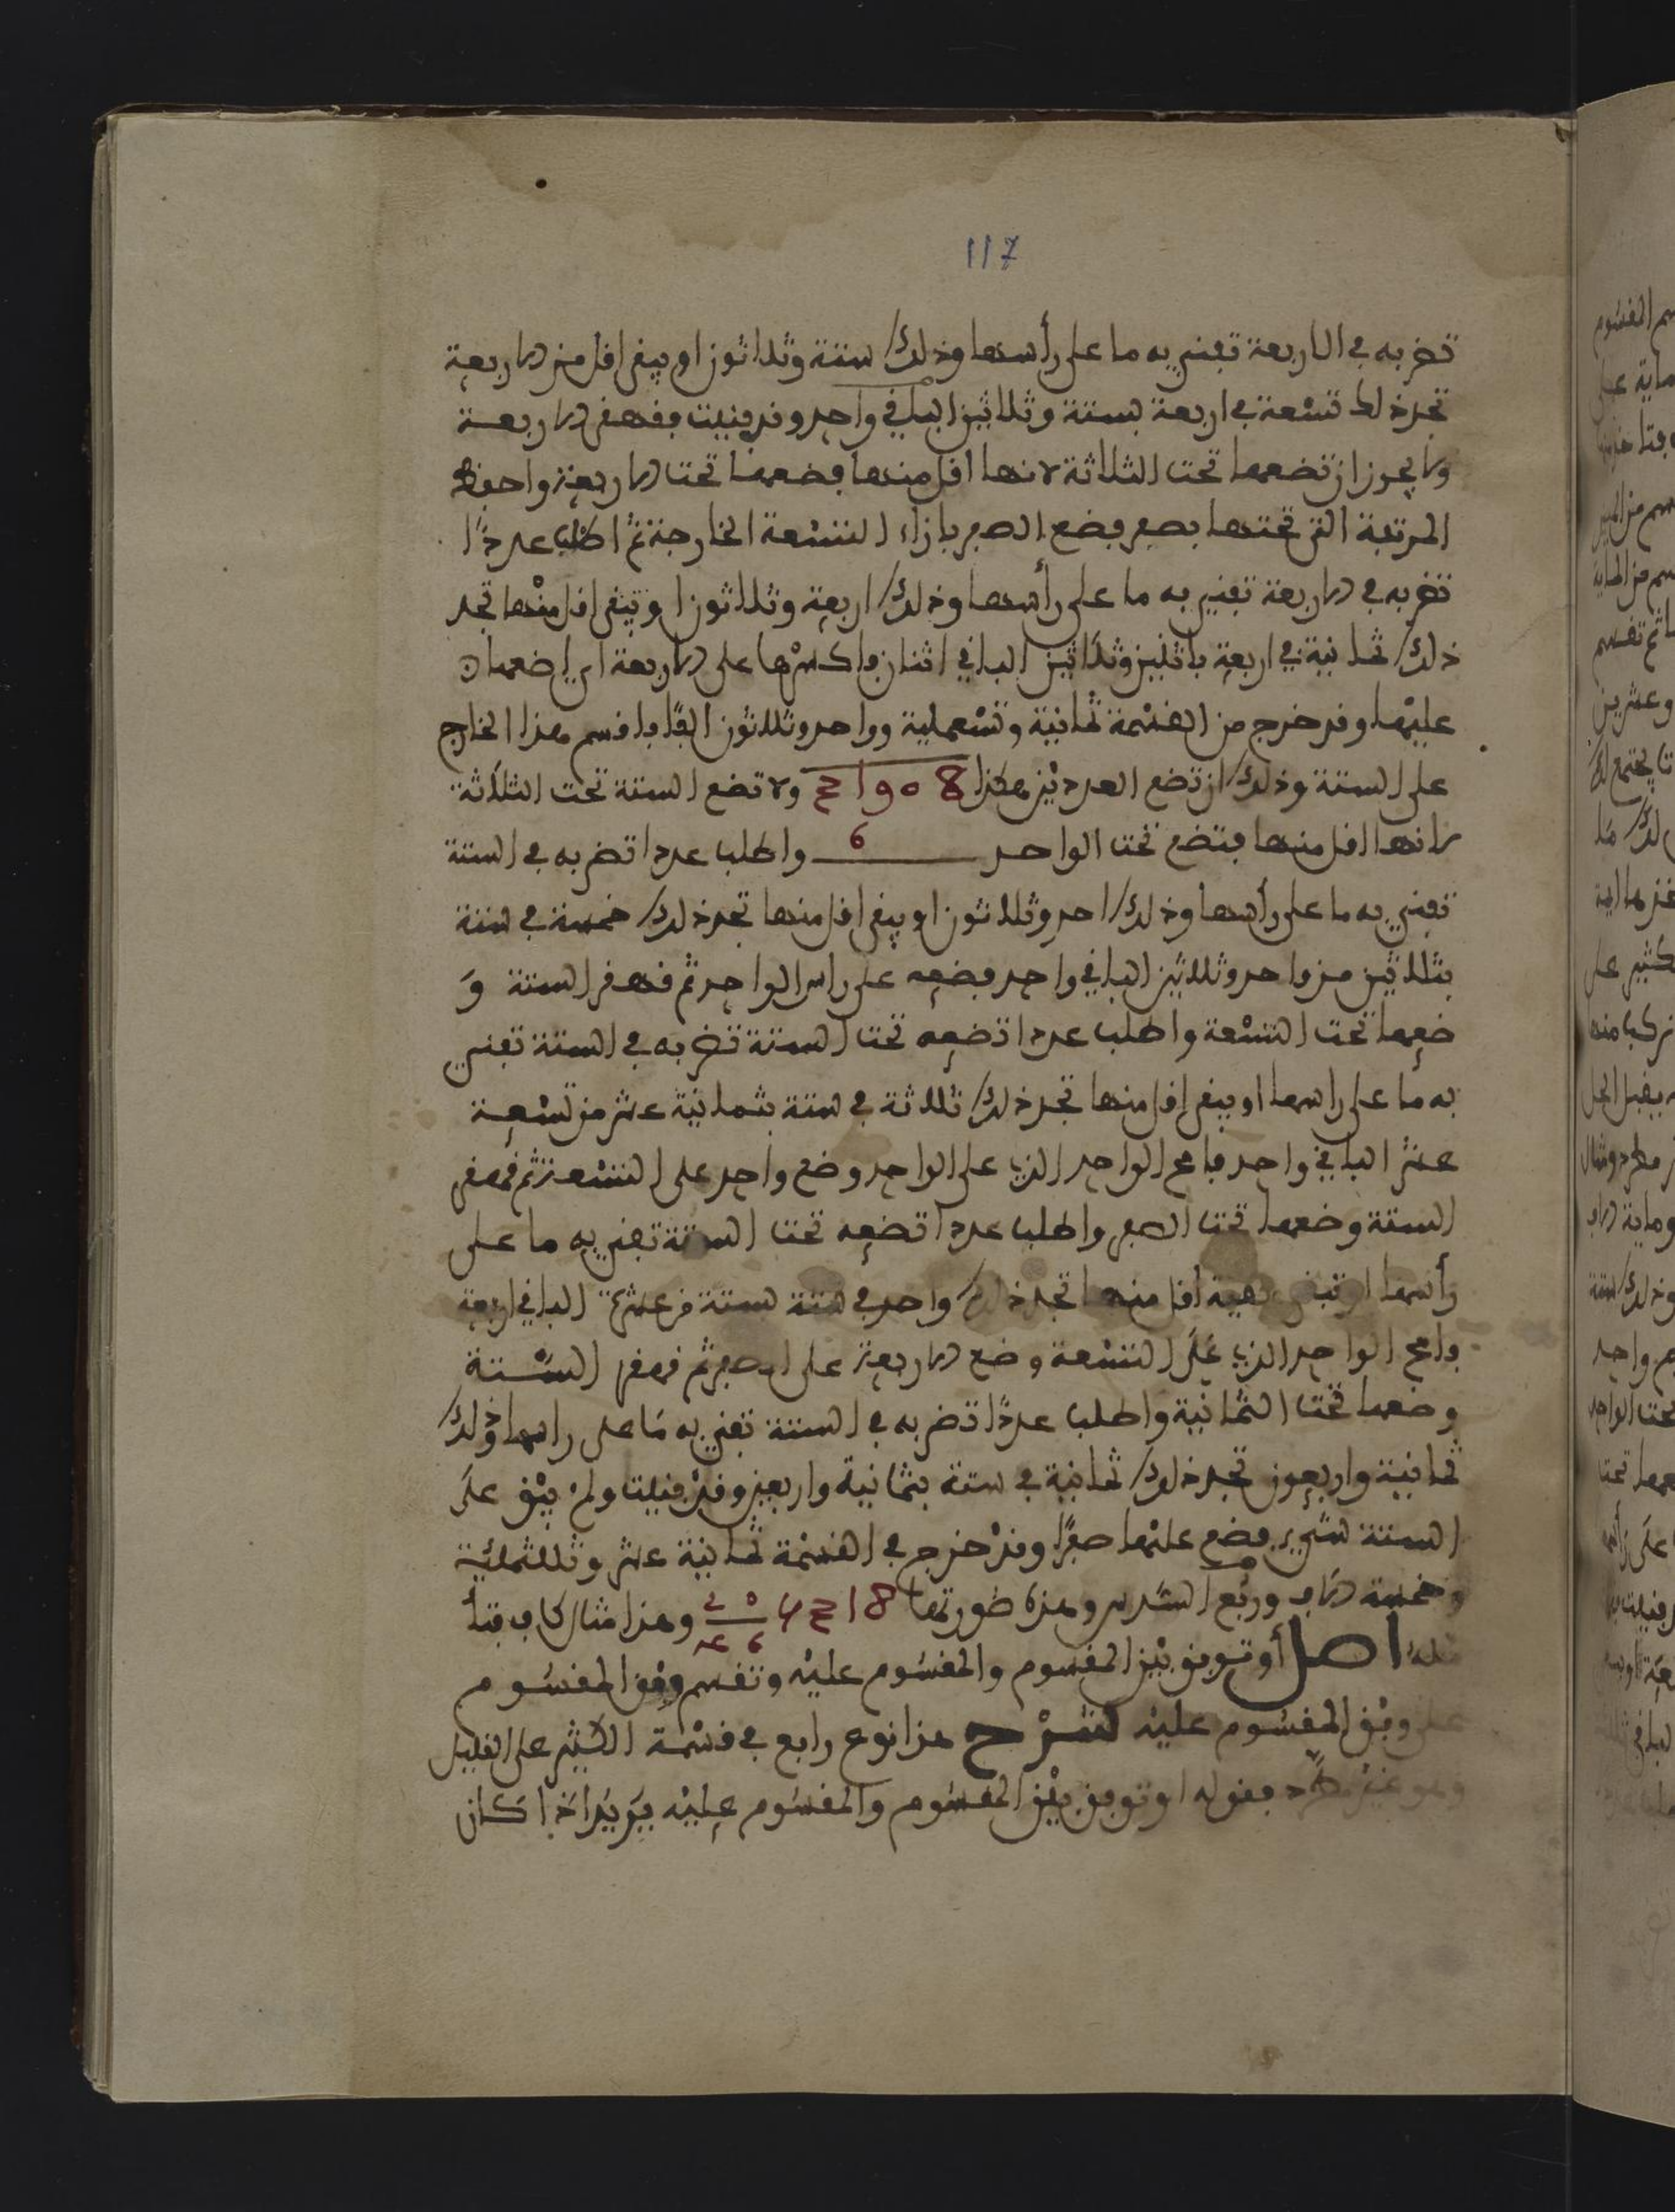 117
تضربه في الاربعة تفني به ما على رأسها وذلك ستة وثلاثون او يبقى اقل من الاربعة
تجد ذلك تسعة في اربعة بستة وثلاثين الباقي واحد وقد فنيت فقهقر الاربعة
ولا يجوز ان تضعها تحت الثلاثة لانها اقل منها فضعها تحت الاربعة واحفظ
المرتبة التي تحتها بصفر فضع الصفر بازاء التسعة الخارجة ثم اطلب عددا
تضربه في الاربعة تفني به ما على رأسها وذلك اربعة وثلاثون او يبقى اقل منها تجد
ذلك ثمانية في اربعة باثنين وثلاثين الباقي اثنان فاكسرها على الاربعة اي اضعها
عليها وقد خرج من القسمة ثمانية وتسعماية وواحد وثلاثون الفا فاقسم هذا الخارج
على الستة وذلك ان تضع العددين هكذا 31908 ولا تضع الستة تحت الثلاثة
لانها اقل منها فتضع تحت الواحد 6 واطلب عددا تضربه في الستة
تفني به ما على رأسها وذلك احد وثلاثون او يبقى اقل منها تجد ذلك خمسة في ستة
بثلاثين من واحد وثلاثين الباقي واحد فضعه على راس الواحد ثم قهقر الستة و
ضعها تحت التسعة واطلب عددا تضعه تحت الستة تضربه في الستة تفني
به ما على راسها او يبقى اقل منها تجد ذلك ثلاثة في ستة بثمانية عشر من تسعة
عشر الباقي واحد فامح الواحد الذي على الواحد وضع واحد على التسعة ثم قهقر
الستة وضعها تحت الصفر واطلب عددا تضعه تحت الستة تفني به ما على
رأسها او تبقى بقية اقل منها تجد ذلك واحد في ستة بستة من عشرة الباقي اربعة
فامح الواحد الذي على التسعة وضع الاربعة على الصفر ثم قهقر الستة
وضعها تحت الثمانية واطلب عددا تضربه في الستة تفني به ما على راسها وذلك
ثمانية واربعون تجد ذلك ثمانية في ستة بثمانية واربعين وقد فنيت ولم يبق على
الستة شيء فضع عليها صفرا وقد خرج في القسمة ثمانية عشر وثلثمائية
وخمسة الاف وربع السدس وهذه صورتها 5318 وهذا مثال كاف فتأ
مله اصل أو توفق بين المقسوم والمقسوم عليه وتقسم وفق المقسوم
على وفق المقسوم عليه شرح هذا نوع رابع في قسمة الكثير على القليل
وهو غير مطرد فقوله او توفق بين المقسوم والمقسوم عليه يريد اذا كان